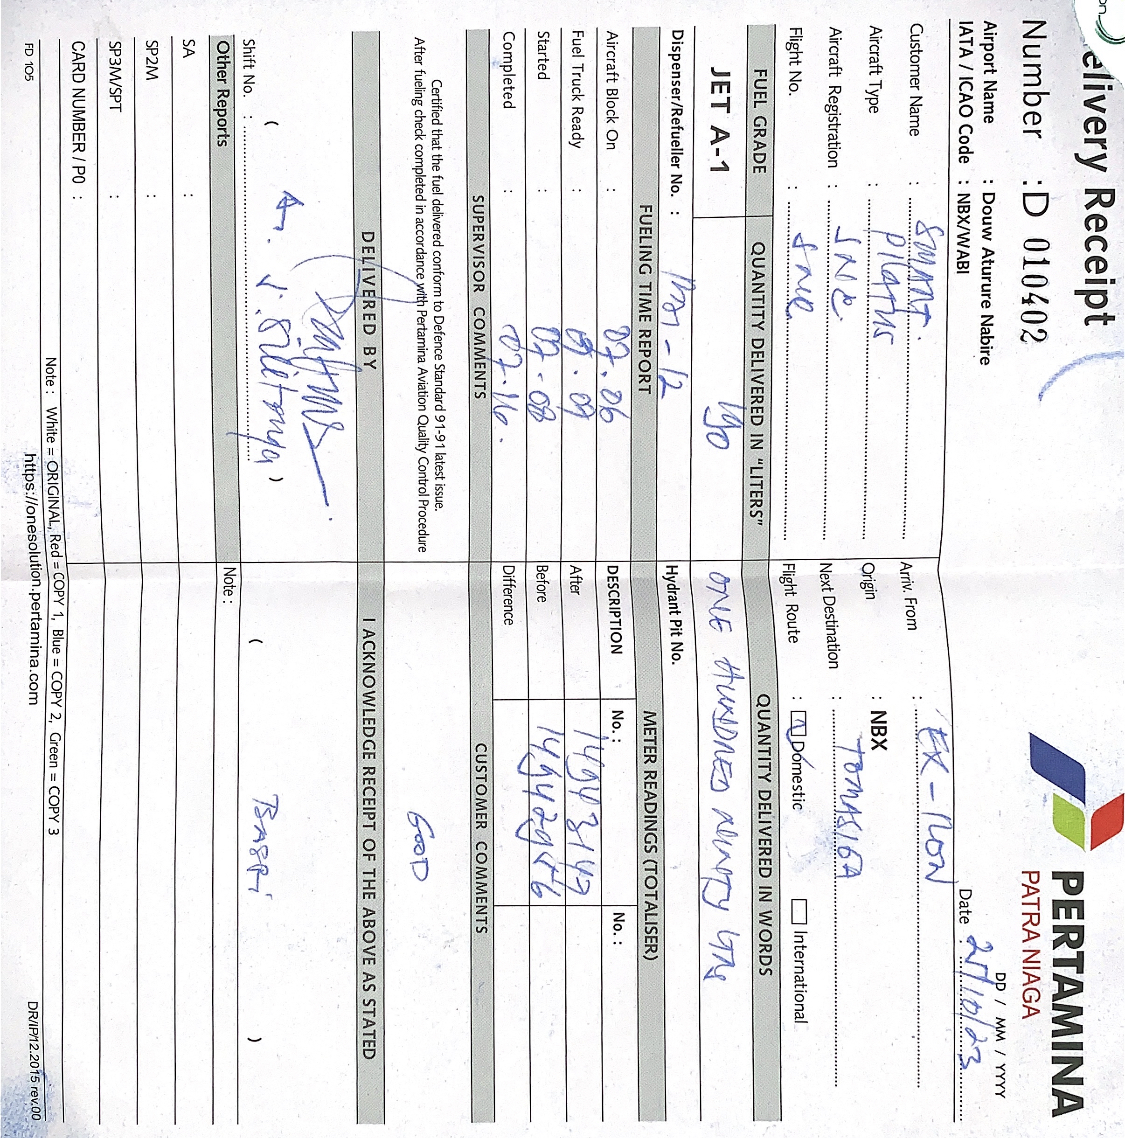 elivery Receipt
PERTAMINA
PATRA NIAGA
Number : D 010402
DD / MM / YYYY
Airport Name : Douw Aturure Nabire
Date : 25/10/23
IATA / ICAO Code : NBX/WABI
Customer Name : SMART.
Arriv. From : EX-
Aircraft Type : PILATUS
Origin : NBX
Aircraft Registration : SNE.
Next Destination : TOMASIGA
Flight No. :
Flight Route : Domestic International
FUEL GRADE QUANTITY DELIVERED IN "LITERS" QUANTITY DELIVERED IN WORDS
JET A-1 190 ONE HUNDRED NINETY LTRS
Dispenser/Refueller No. : - 12 Hydrant Pit No.
FUELING TIME REPORT METER READINGS (TOTALISER)
Aircraft Block On : 07.06 DESCRIPTION No. : No. :
Fuel Truck Ready : After
Started : 07.08 Before
Completed : 07.16. Difference
SUPERVISOR COMMENTS CUSTOMER COMMENTS
Certified that the fuel delivered conform to Defence Standard 91-91 latest issue.
After fueling check completed in accordance with Pertamina Aviation Quality Control Procedure
GOOD
DELIVERED BY I ACKNOWLEDGE RECEIPT OF THE ABOVE AS STATED
( )
( )
Shift No. :
Other Reports Note :
SA :
SP2M :
SP3M/SPT :
CARD NUMBER / PO :
Note : White = ORIGINAL, Red = COPY 1, Blue = COPY 2, Green = COPY 3
FD 105
https://onesolution.pertamina.com
DR/IP/12.2015 rev.00